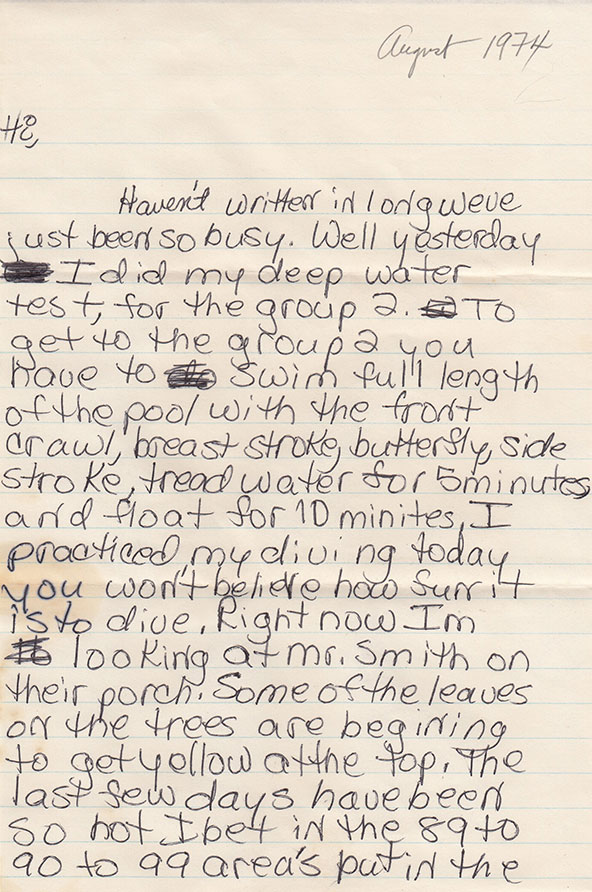 August 1974
Hi,
Haven't written in long weve
just been so busy. Well yesterday
I did my deep water
test, for the group 2. To
get to the group 2 you
have to swim full length
of the pool with the front
crawl, breast stroke, butterfly, side
stroke, tread water for 5 minutes
and float for 10 minites, I
practiced my diving today
you won't believe how
it
is to dive. Right now Im
looking at mr. Smith on
their porch. Some of the leaves
on the trees are begining
to get yellow at the top. The
last few days have been
so hot I bet in the 89 to
90 to 99 area's put in the